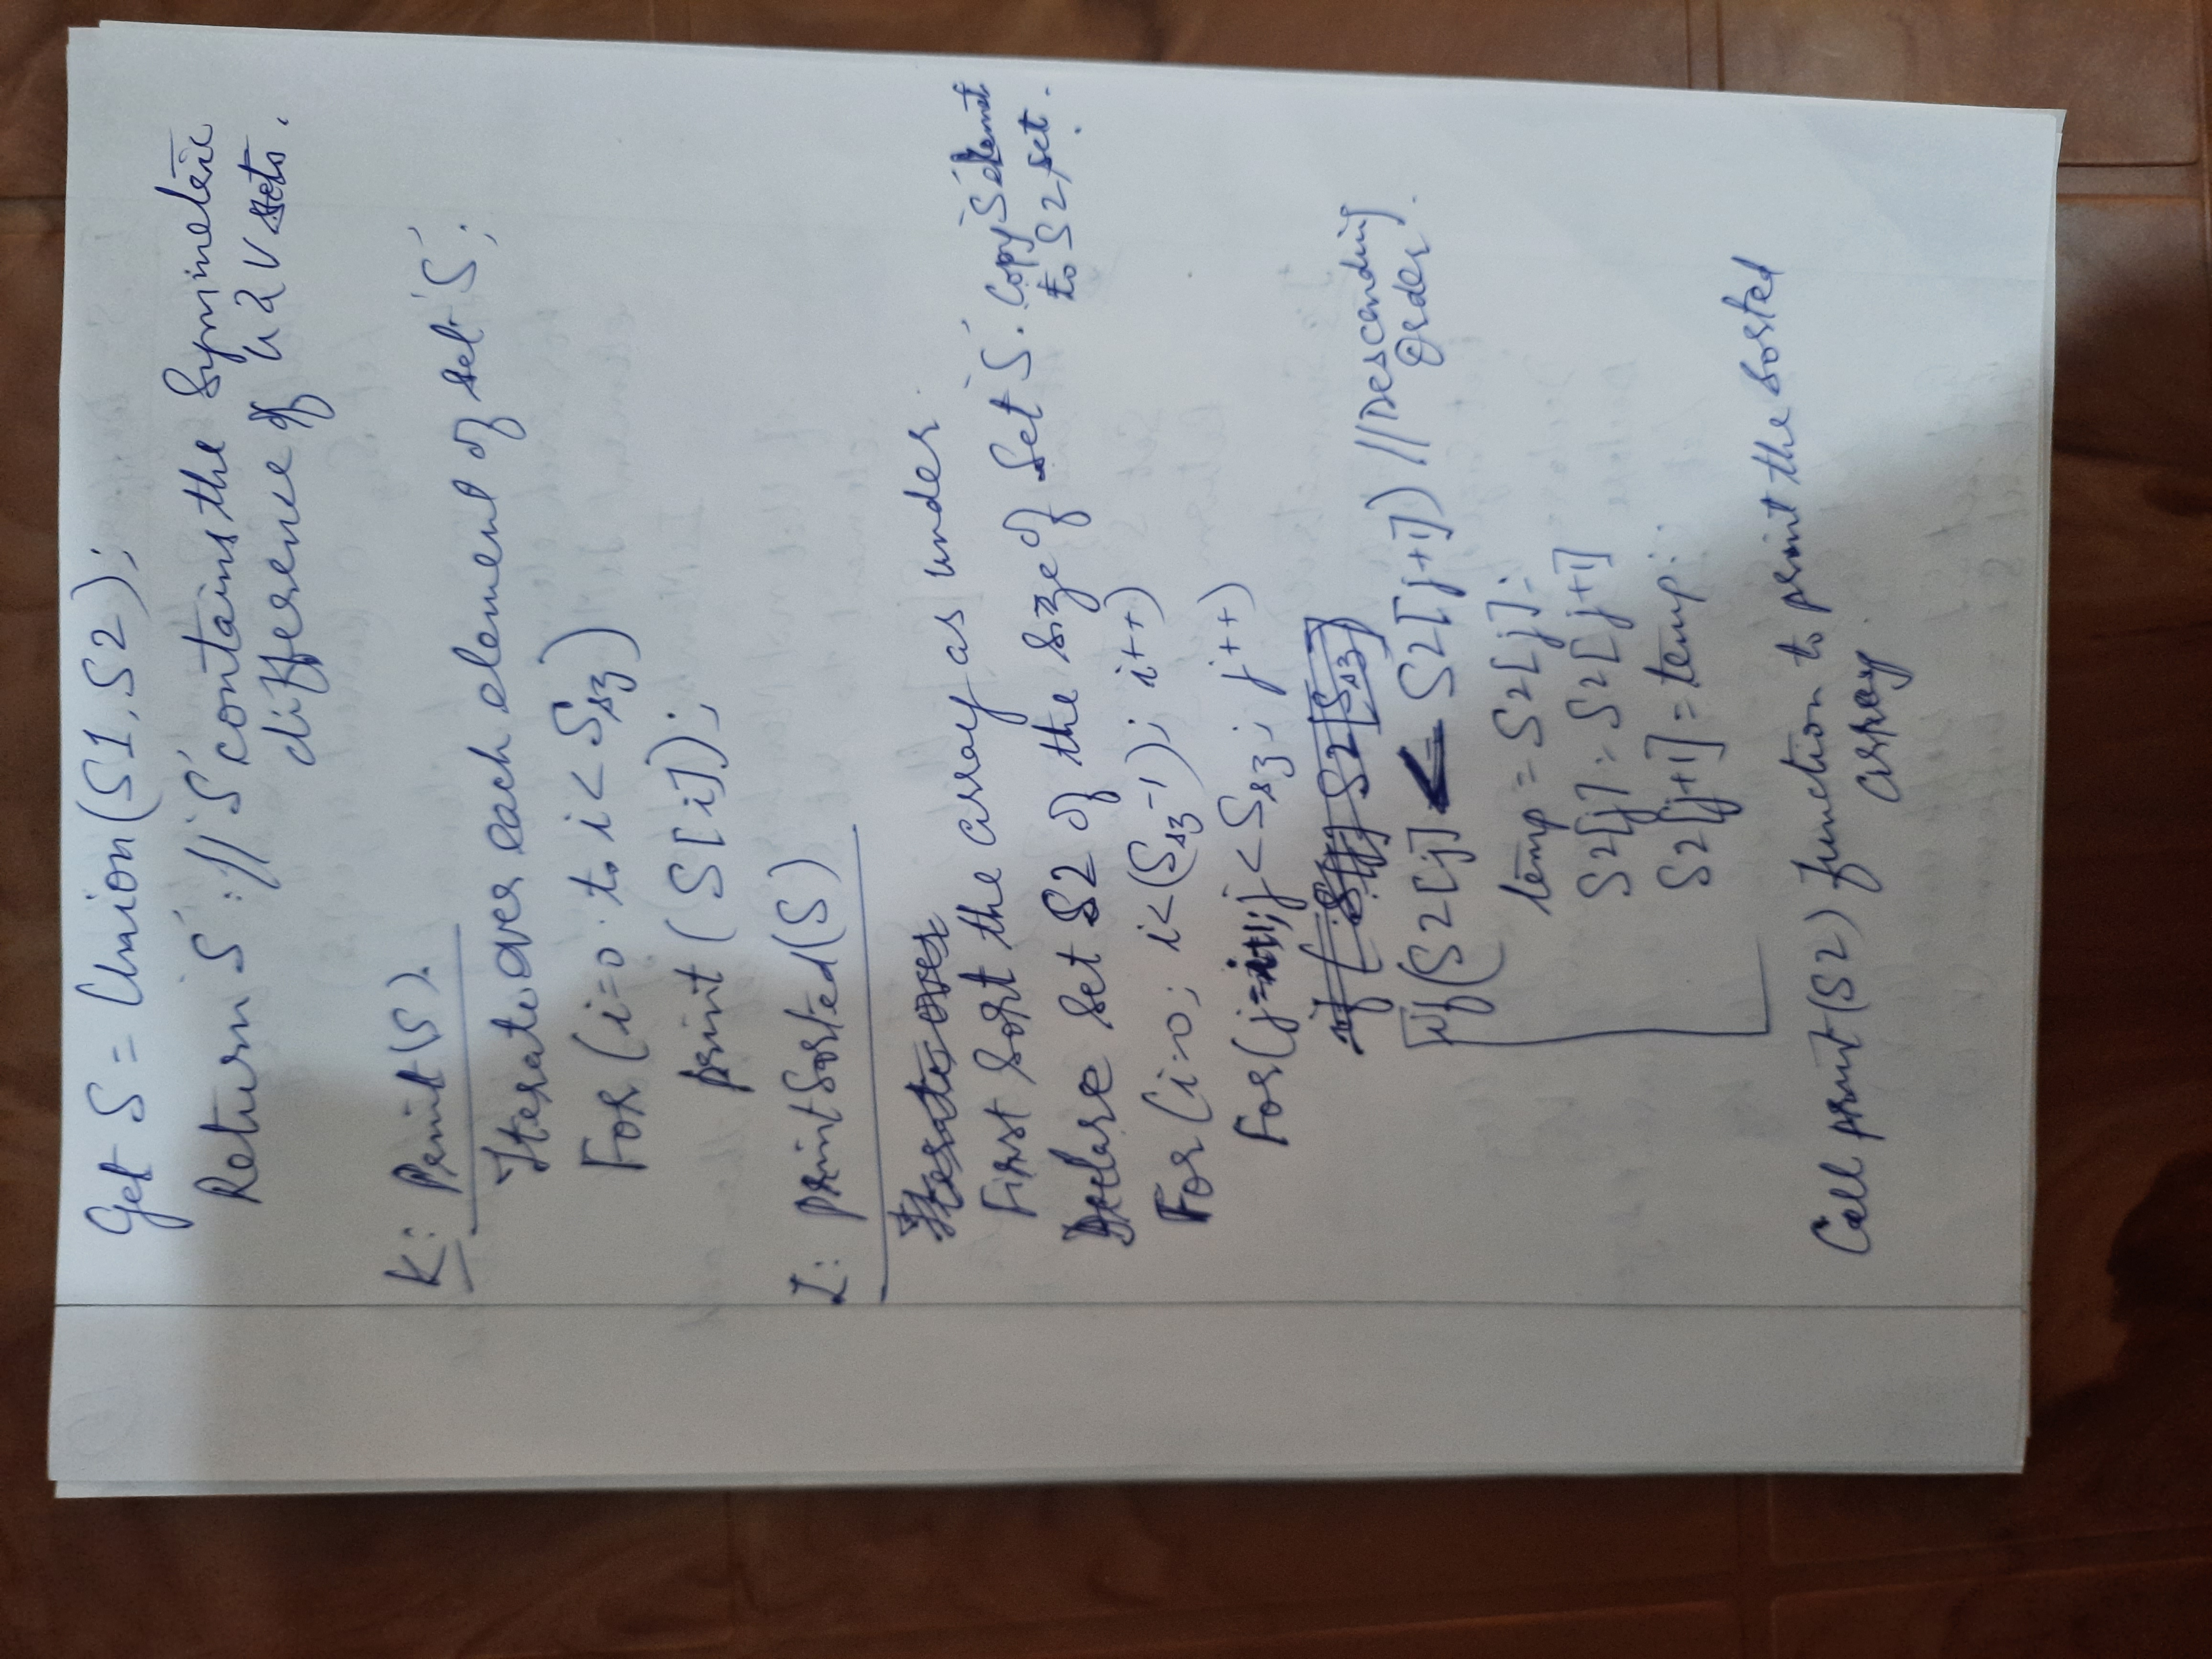 Get S = Union(S1, S2);
Return 'S'; // 'S' contains the Symmetric
difference of U & V sets.
K: Print(S).
Iterate over each element of set 'S';
For (i=0 to i < Ssz)
print (S[i]);
L: printSorted(S)
First sort the array as under
Declare set S2 of the size of set 'S'. Copy 'S' element
to S2 set.
For (i=0; i<(Ssz-1); i++)
For (j= j < Ssz; j++)
if (S2[j] < S2[j+1]) // Descending
Order.
temp = S2[j];
S2[j] = S2[j+1]
S2[j+1] = temp;
Call print(S2) function to print the sorted
array.